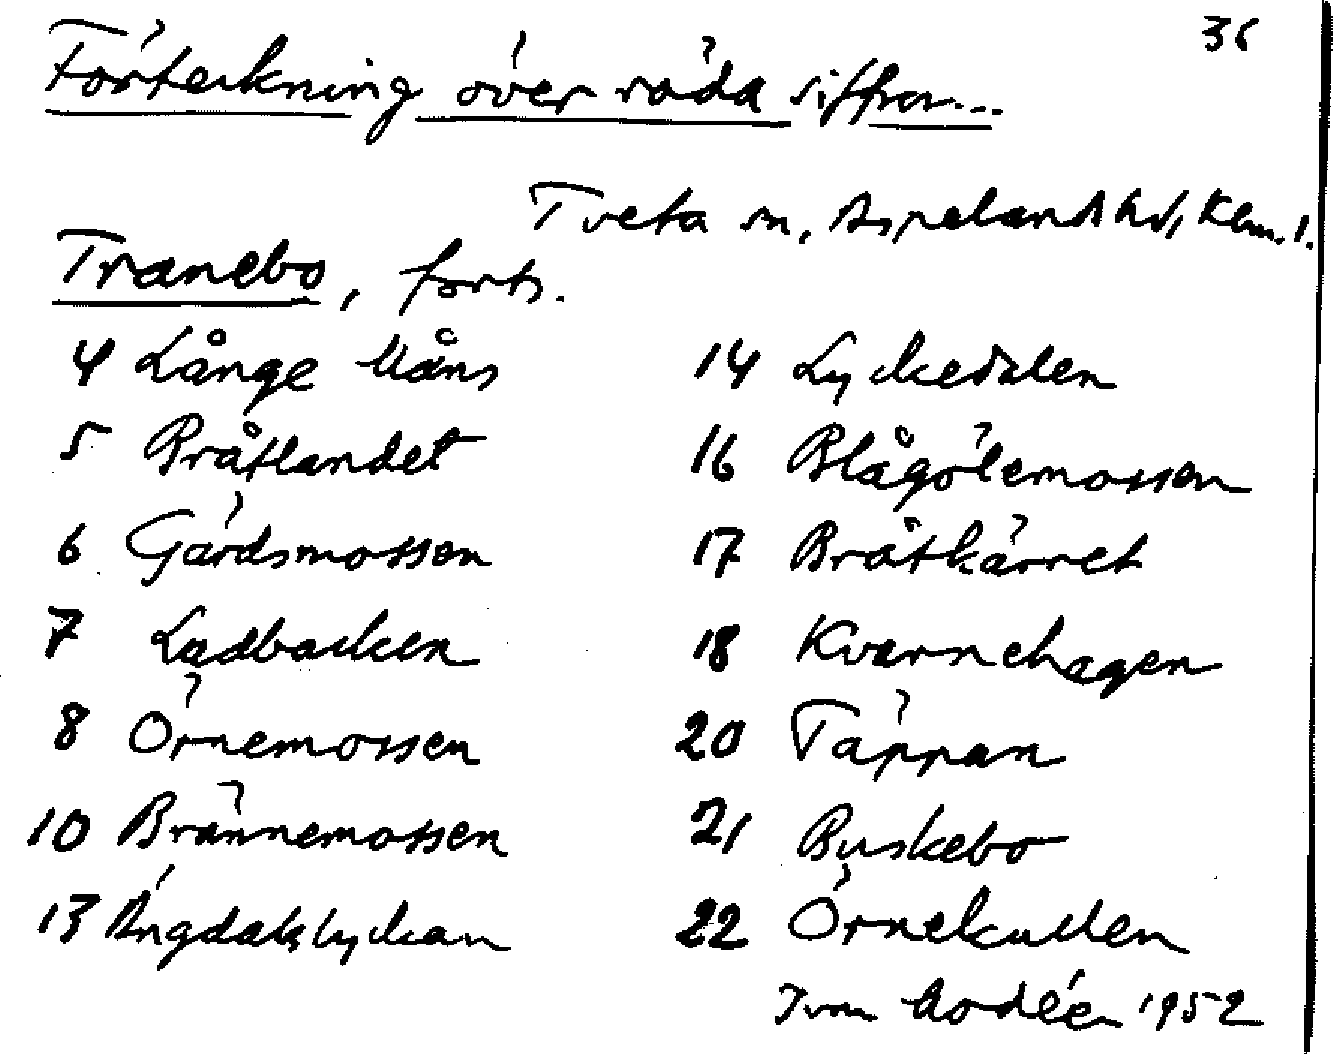 36
Förteckning över röda siffror...
Tveta sn, Aspelands hd, Klm. l.
Tranebo, forts.
4 Långe Måns
5 Bråtlandet
6 Gärdsmossen
7 Ladbacken
8 Örnemossen
10 Brännemossen
13 Ängdalslyckan
14 Lyckedalen
16 Blågölemossen
17 Bråtkärret
18 Kvarnehagen
20 Täppan
21 Buskebo
22 Örnekullen
Ivar Modéer 1952